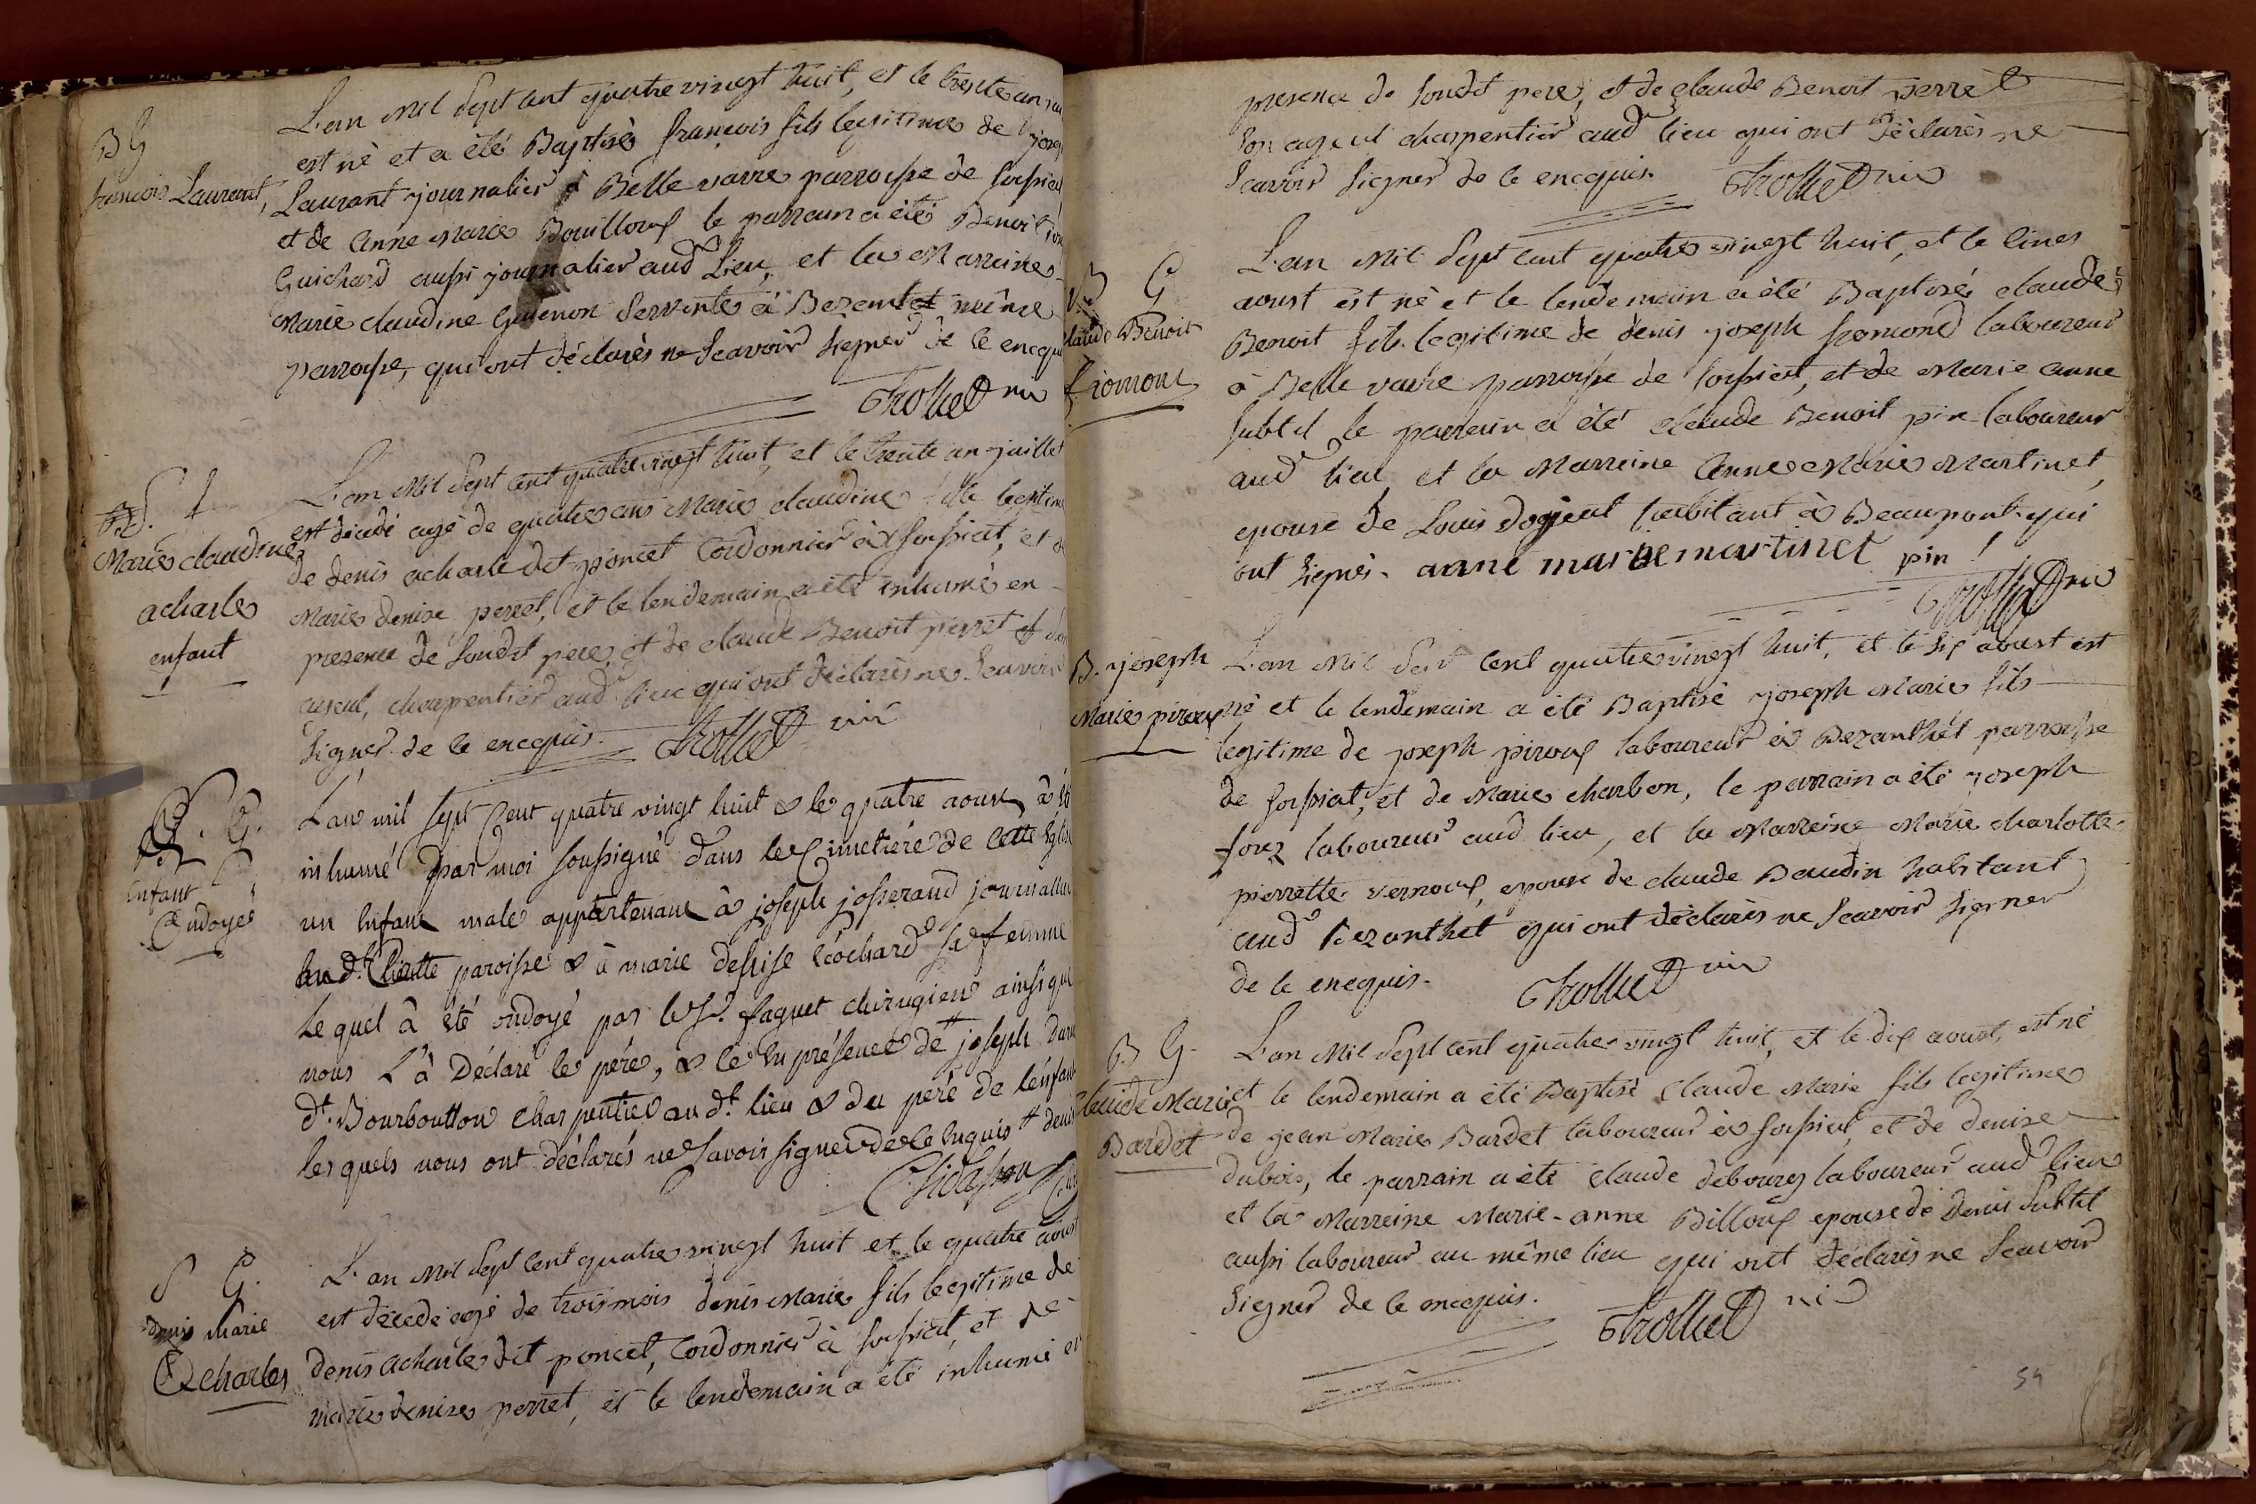 B G
francois Laurent,
L'an mil sept cent quatre vingt huit, et le trente un
est né et a été Baptisé françois fils legitime de
Laurant journalier à Belle varre parroisse de
et de Anne Marie Bouilloux le parrain a été Benoit
Guichard aussi journalier aud Lieu, et la Marreine
Marie claudine Guenon Servante à même
parroisse, qui ont déclarés ne Scavoir Signer de ce enequis
Marie claudine
acharle
enfant
L'an Mil Sept Cent quatre vingt huit, et le trente un juillet
est décédé agé de quatre ans Marie claudine fille legitime
de denis acharle dit poncet Cordonnier à et de
Marie denise perret, et le lendemain a été inhumé en
presence de Soudit pere, et de claude Benoit perret
ayeul, charpentier aud lieu qui ont déclarés ne Scavoir
Signer de ce enequis.
S. G.
Enfant
Ondoyé
L'an mil sept Cent quatre vingt huit & le quatre aoust à été
inhumé par moi soussigné dans le Cimetiére de Cette Eglise
un Enfant male appartenant à joseph josserand journallier
paroisse & à marie denise sa femme
Le quel à été ondoyé par le Sr. faguet chirugien ainsi que
nous L'à Déclaré le pére, & ce En présence de # joseph
dt. Bourboutton charpentier au dt. lieu & du pére de l'enfant
les quels nous ont déclarés ne Savoir signer de ce Enquis #
S G.
denis Marie
acharles
L'an Mil Sept Cent quatre vingt huit et le quatre aoust
est décédé agé de trois mois denis Marie fils legitime de
denis acharles dit poncet, Cordonnier à et de
marie denise perret, et le lendemain a été inhumé en
presence de Soudt pere, et de claude Benoit perret
Son ayeul charpentier aud lieu qui ont déclarés ne
Scavoir Signer de ce enequis.
B G
claude Benoit
fromont
L'an Mil Sept Cent quatre vingt huit, et le Cinq
aoust est né et le lendemain a été Baptisé claude
Benoit fils legitime de denis joseph fromond laboureur
à Belle varre parroisse de et de Marie anne
Subtil le parrain a été claude Benoit pin laboureur
aud lieu et la Marreine Anne Marie Martinet,
epouse de Louis habitant à Beaupont qui
ont Signés. anne marie martinet pin
B. joseph
Marie piroux
L'an Mil Sept Cent quatre vingt huit, et le Six aoust est
né et le lendemain a été Baptisé joseph Marie fils
legitime de joseph piroux laboureur à Bezanthet parroisse
de et de Marie charbon, le parrain a été joseph
laboureur aud lieu, et la Marreine Marie charlotte
pierrette vernoux, epouse de claude Baudin habitant
aud Bezanthet qui ont déclarés ne Scavoir Signer
de ce enequis.
B G.
claude Marie
Bardet
L'an Mil Sept Cent quatre vingt huit, et le dix aoust, est né
et le lendemain a été Baptisé Claude Marie fils legitime
de jean Marie Bardet laboureur à et de denise
dubois, le parrain a été Claude debourg laboureur aud lieu
et la Marreine Marie-anne Billoux epouse de Denis Subtil
aussi laboureur au même lieu qui ont déclarés ne Scavoir
Signer de ce enequis.
54